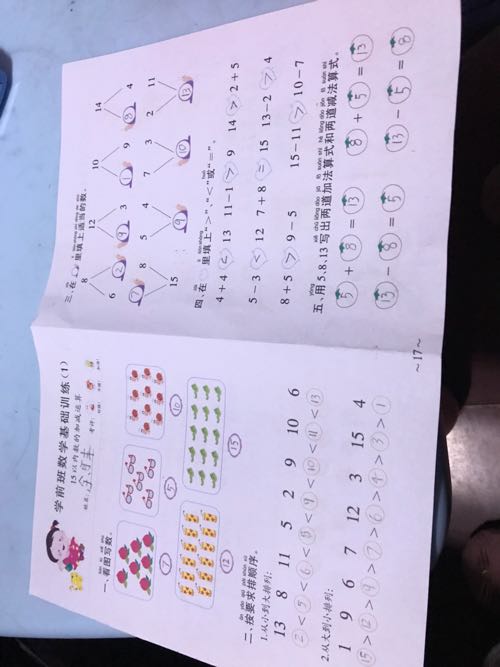 学前班数学基础训练(1)
15以内数的加减运算
姓名: 考评:
一、看图写数。
7 5 10
12 15
二、按要求排顺序。
1.从小到大排列:
13 8 11 5 2 9 10 6
2<5<6<8<9<10<11<13
2.从大到小排列:
1 9 6 7 12 3 15 4
15>12>9>7>6>4>3>1
三、在 里填上适当的数。
8 12 10 14
6 2 9 3 1 9 8 4
7 8 5 4 7 3 2 11
15 9 10 13
四、在 里填上“>”、“<”或“=”。
4+4<13 11-1>9 14>2+5
5-3<12 7+8=15 13-2>4
8+5>9-5 15-11>10-7
五、用5、8、13写出两道加法算式和两道减法算式。
5+8=13 8+5=13
13-8=5 13-5=8
~17~